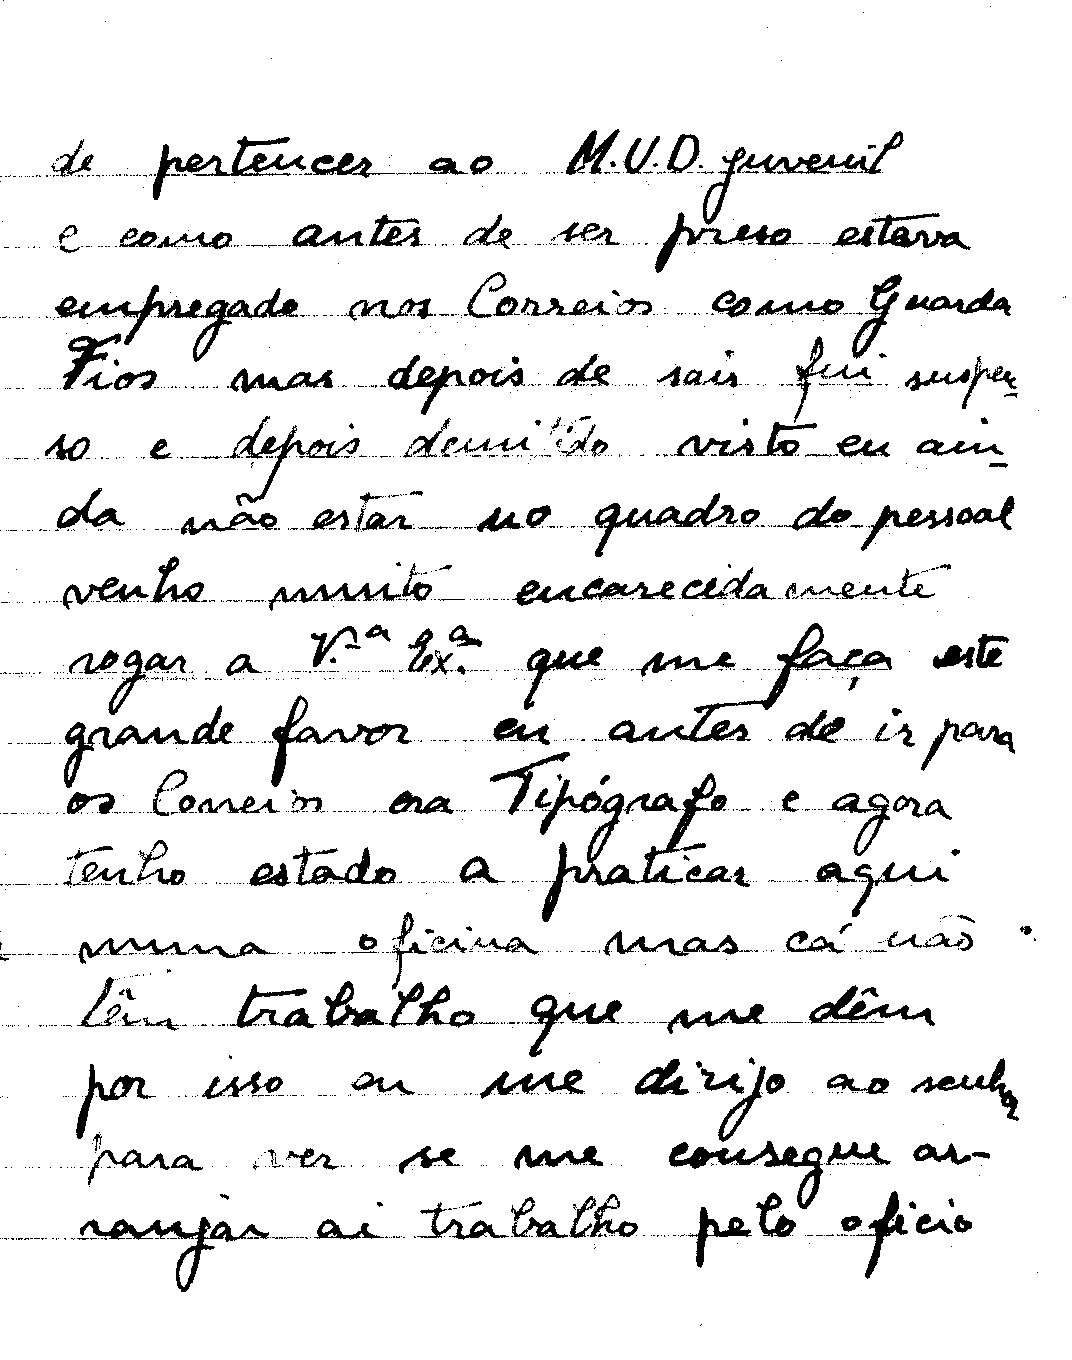 de pertencer ao M.U.D. juvenil
e como antes de ser preso estava
empregado nos Correios como Guarda
Fios mas depois de sair fui suspen-
so e depois demitido visto eu ain-
da não estar no quadro do pessoal
venho muito encarecidamente
rogar a V.ª Ex.ª que me faça este
grande favor eu antes de ir para
os Correios era Tipógrafo e agora
tenho estado a praticar aqui
numa oficina mas cá não
têm trabalho que me dêm
por isso eu me dirijo ao senhor
para ver se me consegue ar-
ranjar ai trabalho pelo oficio